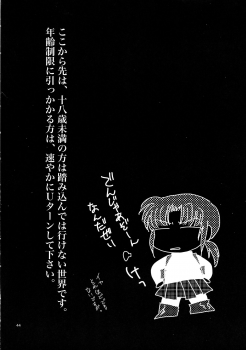 ここから先は、十八歳未満の方は踏み込んでは行けない世界です。
年齢制限に引っかかる方は、速やかにUターンして下さい。
でんじゃあぞおーん
なんだぜい